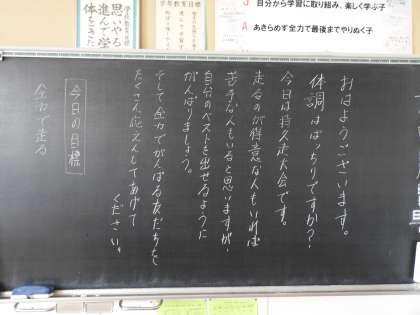 学校教育目標
思いやる
進んで学
体をきた
学校教育目標
J 自分から学習に取り組み、楽しく学ぶ子
A あきらめず全力で最後までやりぬく子
おはようございます。
体調はばっちりですか？
今日は持久走大会です。
走るのが得意な人もいれば
苦手な人もいると思いますが、
自分のベストを出せるように
がんばりましょう。
そして全力でがんばる友だちを
たくさん応えんしてあげて
ください。
今日の目標
全力で走る